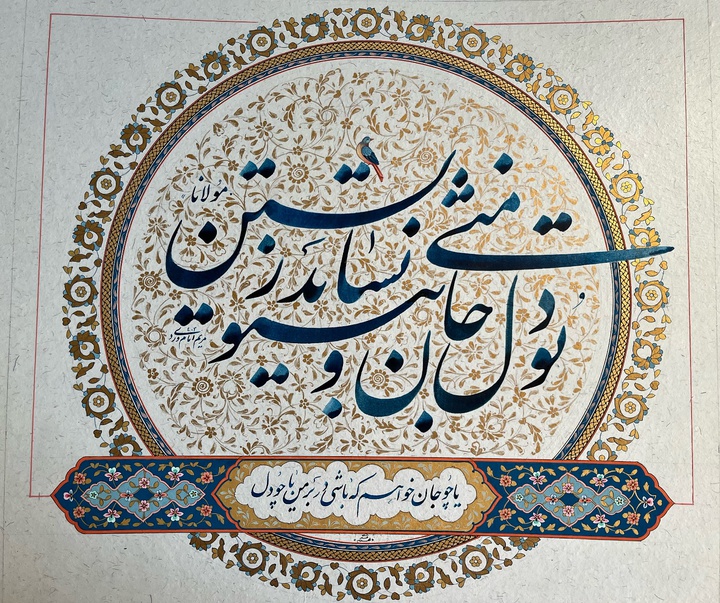 تُو دل و جان منی بیتو نشاید زیستن
مولانا
یا چو جان خواهم که باشی در بر من یا چو دل